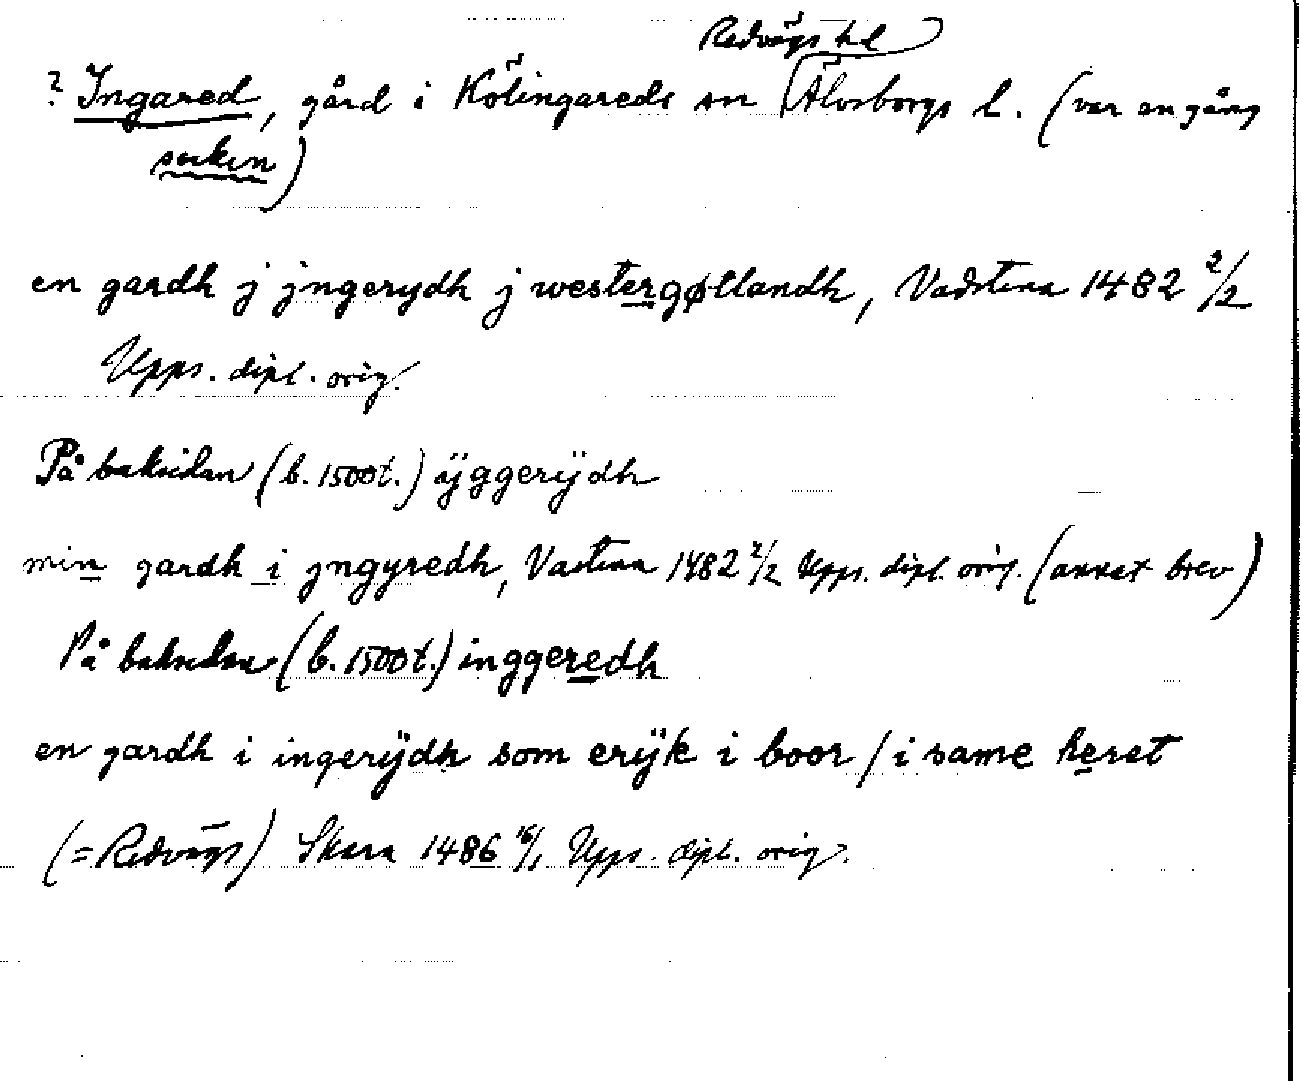 Redvägs hd
? Ingared, gård i Kölingareds sn Älvsborgs l. (var en gång
socken)
en gardh j jngerydh j westergøtlandh, Vadstena 1482 2/2
Upps. dipl. orig.
På baksidan (b. 1500t.) ÿggerÿdh
min gardh i jngyredh, Vastena 1482 2/2 Upps. dipl. orig. (annat brev)
På baksidan (b. 1500t.) inggeredh
en gardh i ingerÿdh som erÿk i boor / i same heret
(= Redvägs) Skara 1486 16/1 Upps. dipl. orig.